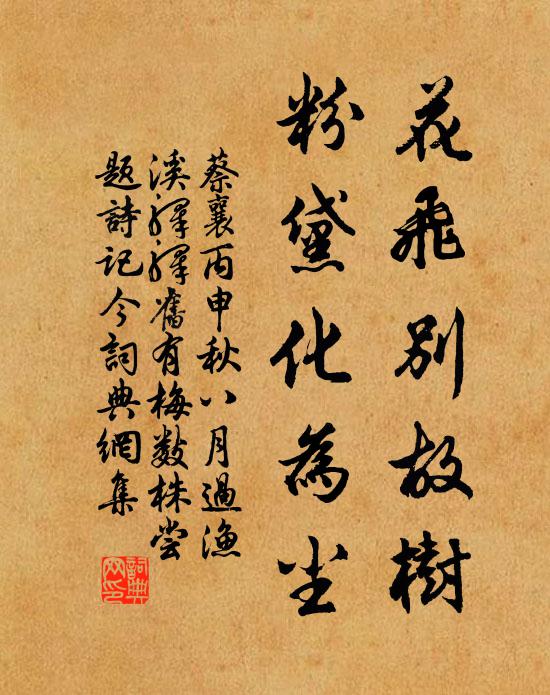 花飛別故樹
粉黛化為尘
蔡襄丙申秋八月過漁
溪驛驛舊有梅数株尝
題詩記今詞典網集
詞典
网印